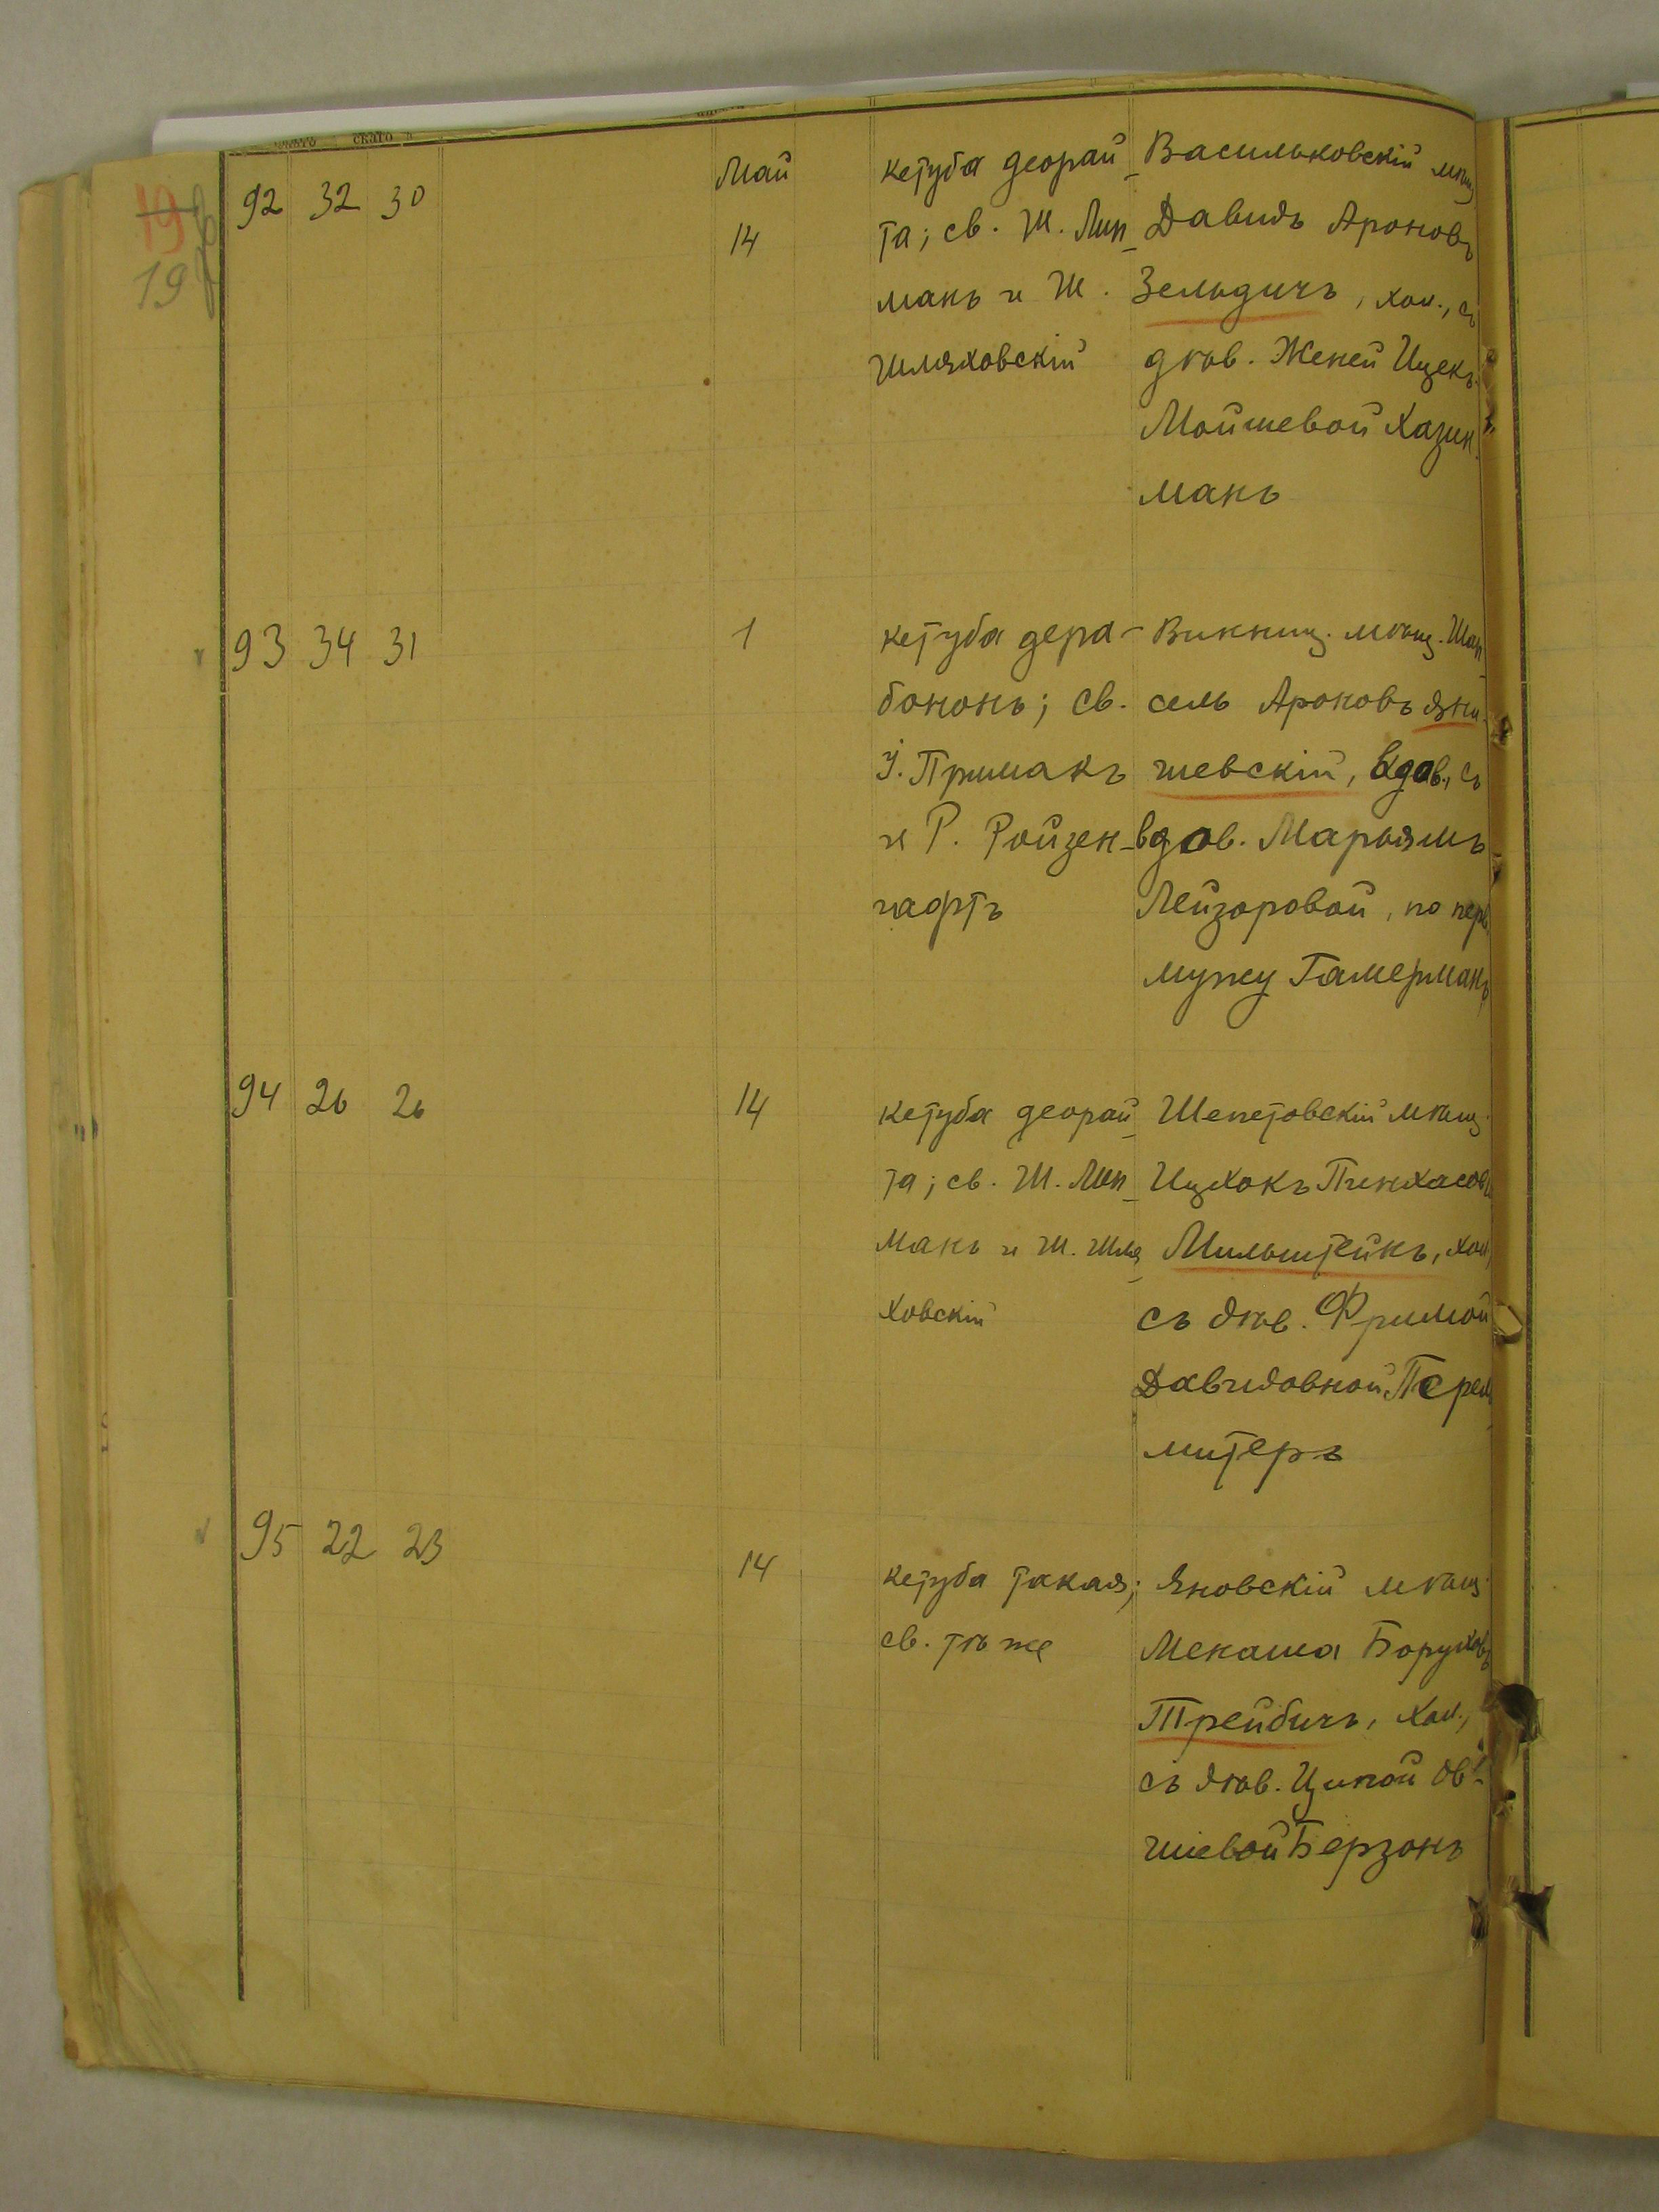 скаго
198
197
92 32 30
Май
14
кетуба деорай-
та; св. Ш. Лип-
манъ и Ш.
Шляховскій
Васильковскій мѣщ.
Давидъ Ароновъ
Зельдичъ, хол., съ
дѣв. Женей Ицекъ-
Мойшевой Хазин-
манъ
93 34 31
1
кетуба дера-
бононъ; св.
І. Примакъ
и Р. Ройзен-
гафтъ
Винниц. мѣщ. Шап-
сель Ароновъ Яни-
шевскій, вдов., съ
вдов. Марьямъ
Лейзоровой, по перв.
мужу Гамерманъ
94 26 26
14
кетуба деорай-
та; св. Ш. Лип-
манъ и Ш. Шля-
ховскій
Шепетовскій мѣщ.
Ицхокъ Пинхасовъ
Мильштейнъ, хол.,
съ дѣв. Фримой
Давидовной Перель-
митеръ
95 22 23
14
кетуба такая;
св. тѣ же
Яновскій мѣщ.
Менаша Боруховъ
Трейбичъ, хол.,
съ дѣв. Ципой Ов-
шіевой Берзонъ